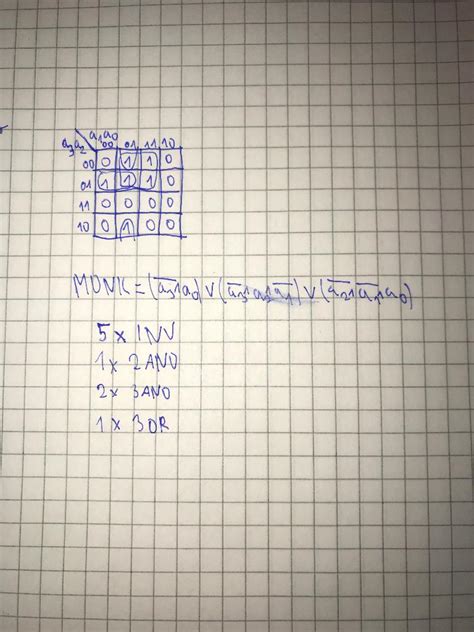 a₁a₀
a₃a₂ 00 01 11 10
00 0 1 1 0
01 1 1 1 0
11 0 0 0 0
10 0 1 0 0
MDNK = (a̅₃∧a₀) ∨ (a̅₃∧a₂∧a̅₁) ∨ (a̅₂∧a̅₁∧a₀)
5 x INV
1 x 2AND
2 x 3AND
1 x 3OR